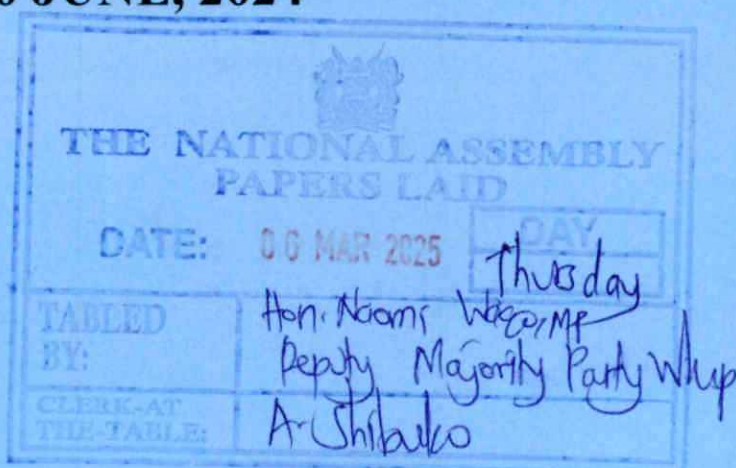 JUNE, 2024
THE NATIONAL ASSEMBLY
PAPERS LAID
DATE: 06 MAR 2025
DAY
Thursday
TABLED BY:
Hon. Naomi Waqo, MP
Deputy Majority Party Whip
CLERK-AT THE-TABLE:
A. Shibuko